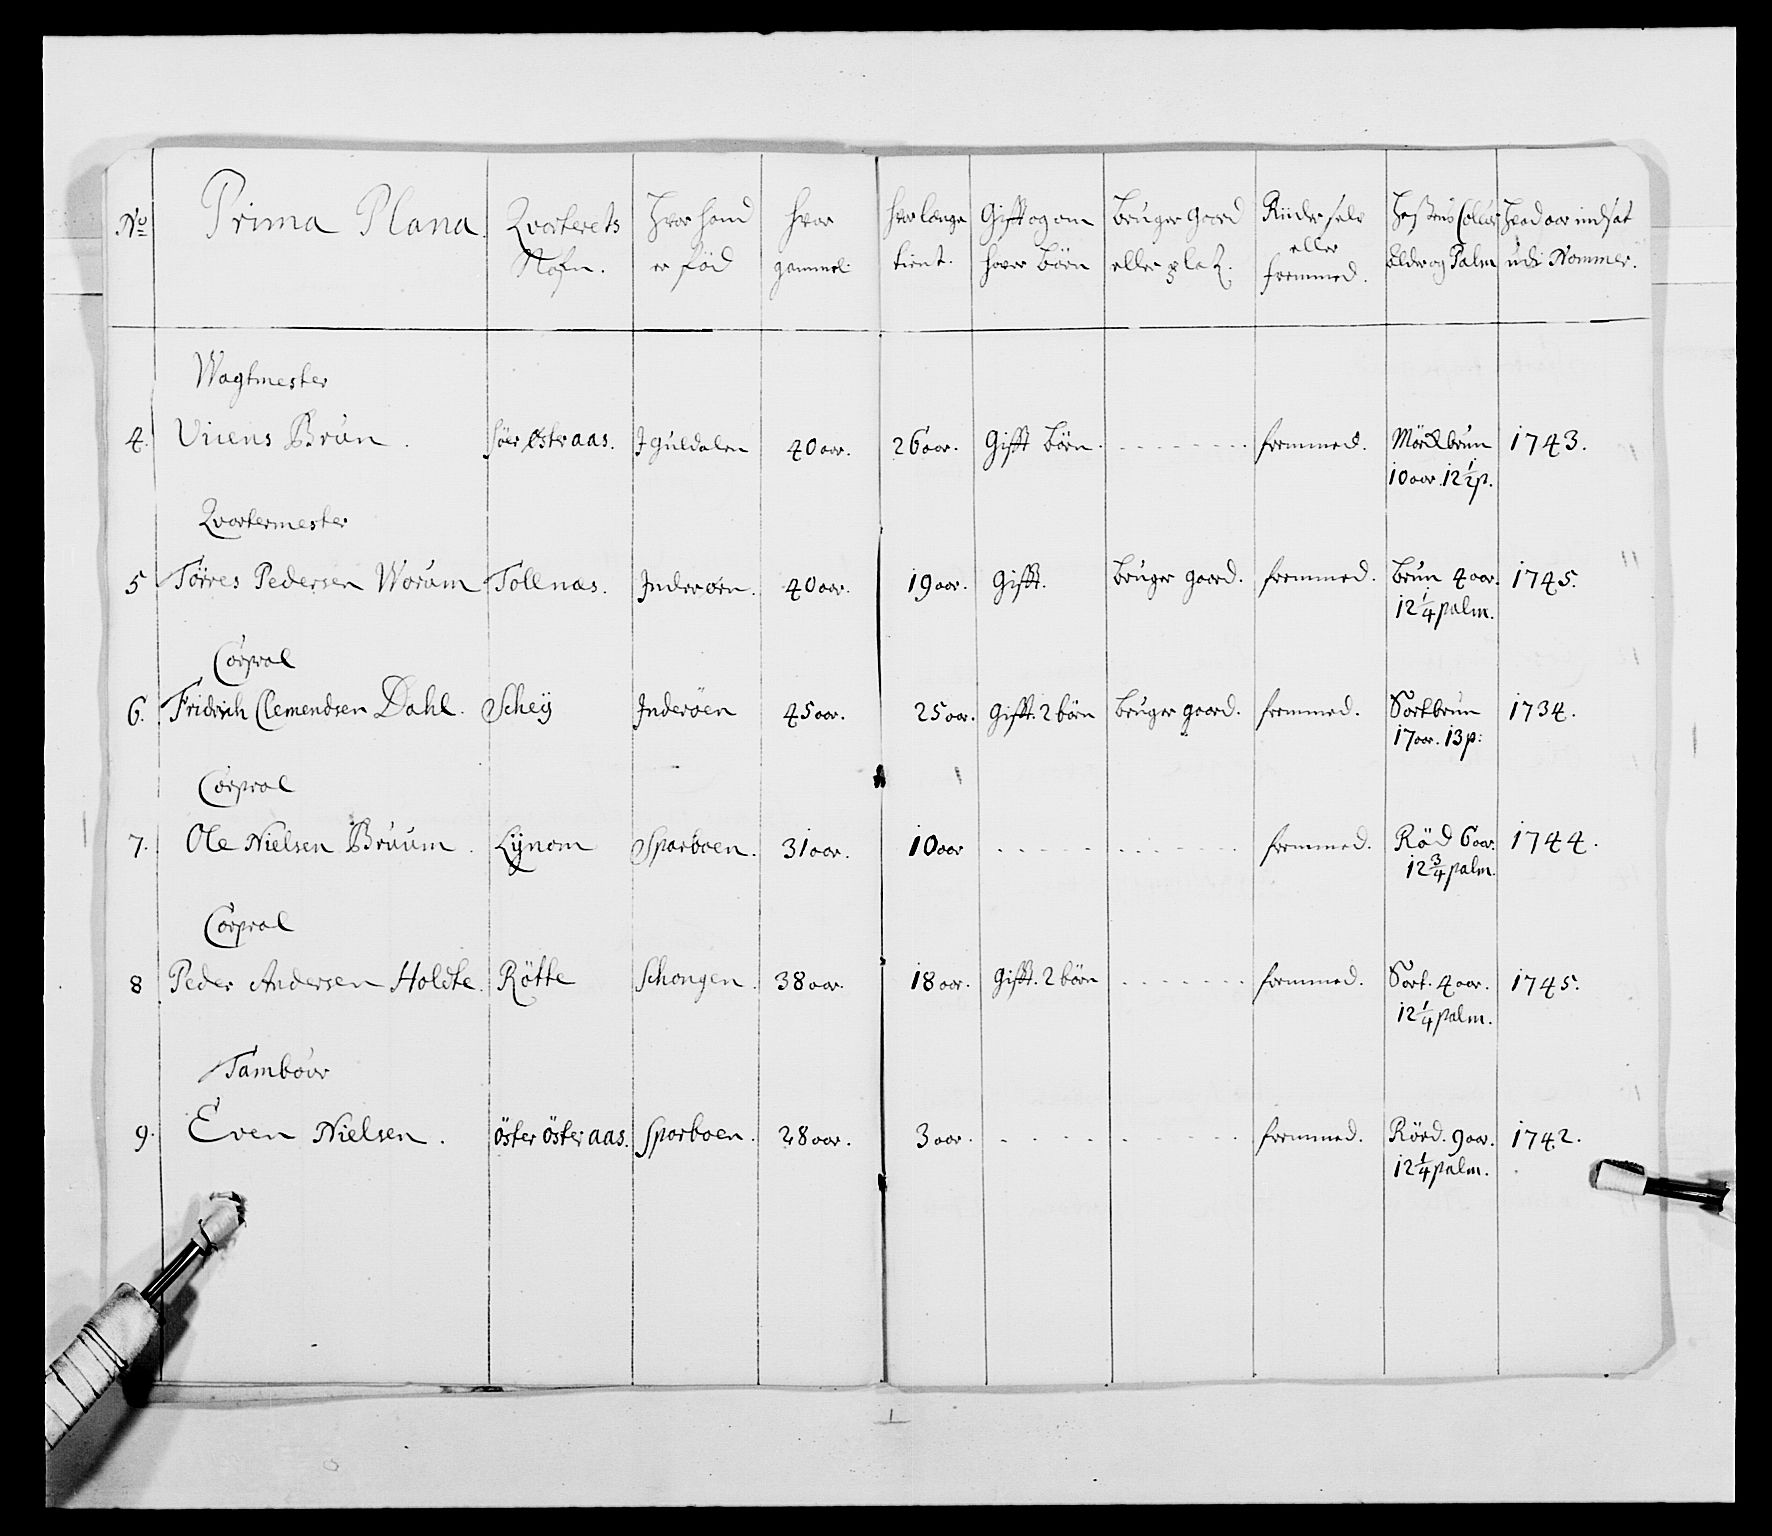 No Prima Plana. Qvarterets Hvor hand Hvor Hvorlænge Gifft og om Bruger Gaard Riider selv Hæstens Coleur Hvad aar indsat
Nafn. er föd gammel tient. haver Börn eller platz. eller fremmed. alder og Palm udi Nommer.
Wagtmester
4. Viiens Brun. Söer Østeraas. I Guldalen 40 aar. 26 aar. Gifft Börn. fremmed. Mörckbrun 1743.
10 aar. 12 1/2 p.
Qvartermester
5 Törres Pedersen Worum Tollnæs. Inderöen. 40 aar. 19 aar. Gifft. Bruger gaard. fremmed. Brun 4 aar. 1745.
12 1/4 palm.
Corpral
6. Fridrich Clemendsen Dahl. Scheÿ Inderöen 45 aar. 25 aar. Gifft. 2 börn Bruger gaard. fremmed. Sortbrun 1734.
17 aar. 13 p:
Corpral
7. Ole Nielsen Bruum. Lÿnom Sparboen. 31 aar. 10 aar fremmed. Röd 6 aar. 1744.
12 3/4 palm.
Corpral
8 Peder Andersen Holdte. Rötte Schongen. 38 aar. 18 aar. Gifft. 2 börn fremmed. Sort. 4 aar. 1745.
12 1/4 palm.
Tambour
9. Even Nielsen. Öster Österaas. Sparboen. 28 aar. 3 aar. fremmed. Röed. 9 aar. 1742.
12 1/4 palm.